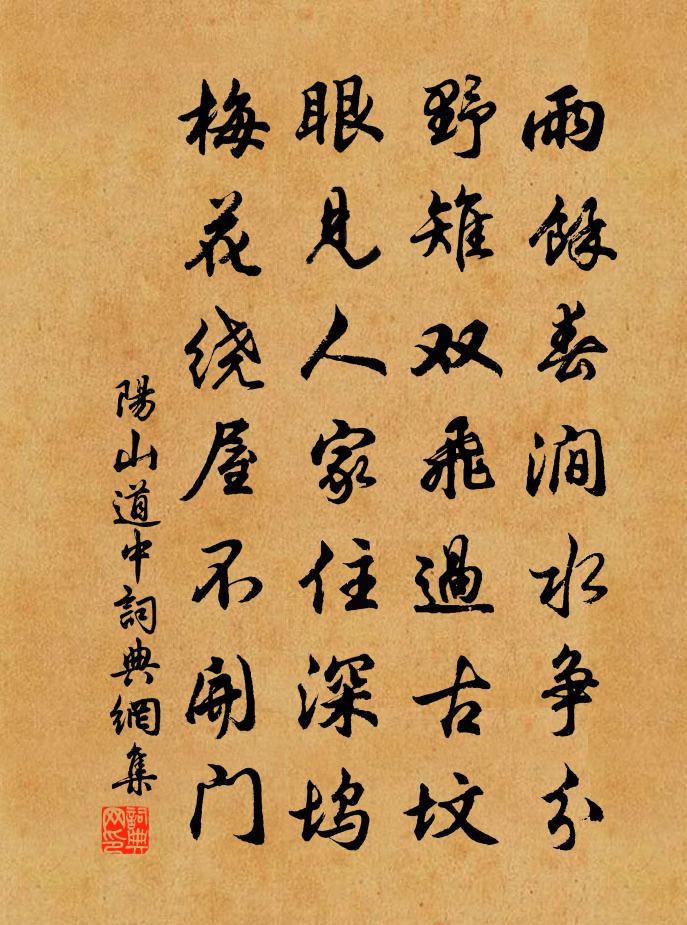 雨餘春澗水争分
野雉双飛過古坟
眼見人家住深坞
梅花绕屋不開门
陽山道中詞典網集
詞典网印